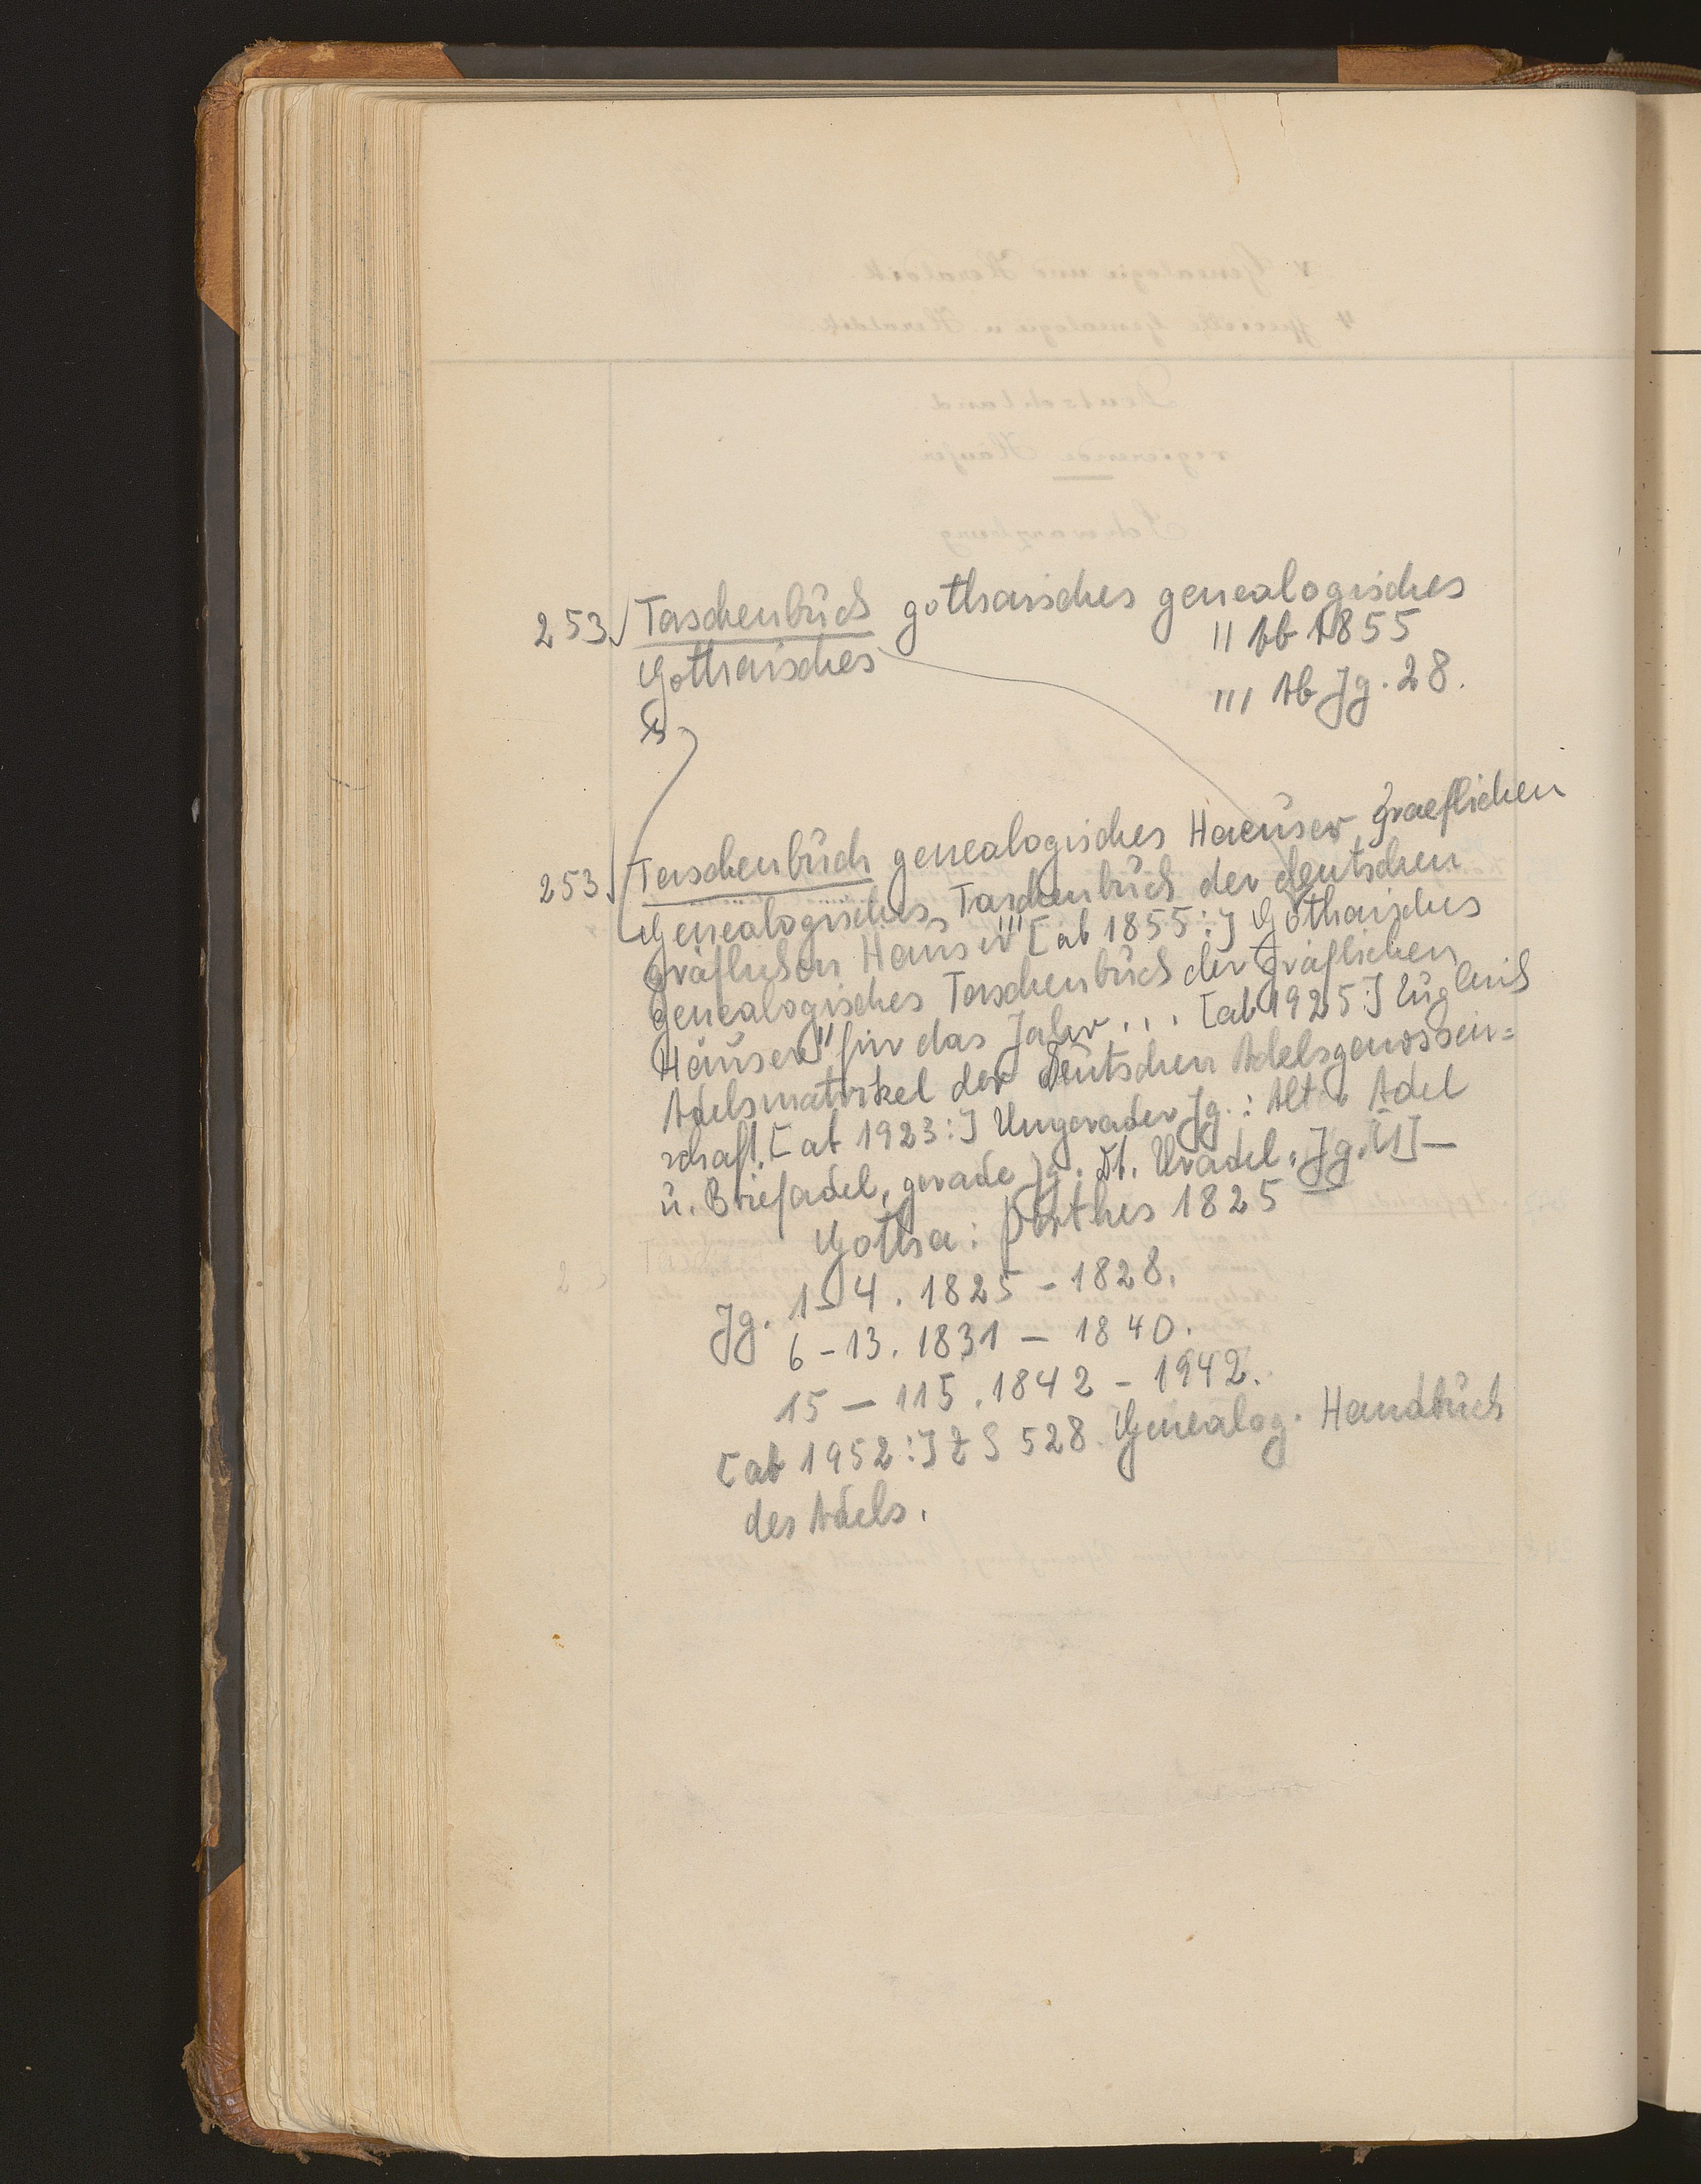 253 Taschenbuch gothaisches genealogisches
Gothaisches
" Ab 1855
"' Ab Jg. 28.
253 Taschenbuch genealogisches Haeuser graeflichen
Genealogisches Taschenbuch der deutschen
gräflichen Häuser"' [ab 1855:] Gothaisches
genealogisches Taschenbuch der gräflichen
Häuser" für das Jahr... [ab 1925:] Zugleich
Adelsmatrikel der Deutschen Adelsgenossen=
schaft. [ab 1923:] Ungerader Jg.: Alter Adel
u. Briefadel, gerade Jg. Dt. Uradel. Jg. [1]—
Gotha: Perthes 1825
Jg. 1-4. 1825-1828.
6-13. 1831-1840.
15-115. 1842-1942.
[ab 1952:] ZS 528 Genealog. Handbuch
des Adels.